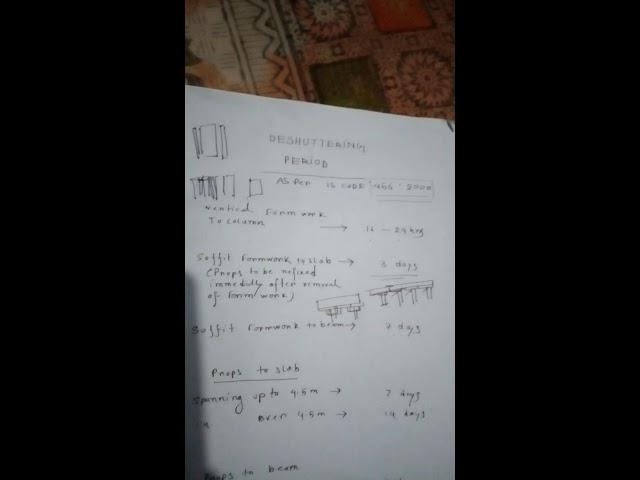 DESHUTTERING
PERIOD
AS Per IS CODE 456 : 2000
Vertical Formwork
To column → 16 - 24 hrs
Soffit Formwork to slab → 3 days
(Props to be refixed
immedietly after removal
of Form work)
Soffit Formwork to beam → 7 days
Props to slab
Spanning up to 4.5m → 7 days
over 4.5m → 14 days
Props to beam